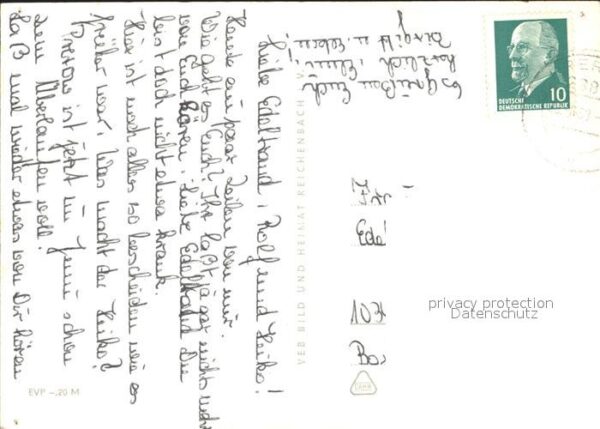 Liebe Edeltraud, Rolf und Heiko!
Heute ein paar Zeilen von mir.
Wie geht es Euch? Ihr laßt ja gar nichts mehr
von Euch hören, liebe Edeltraud Du
bist doch nicht etwa krank.
Hier ist noch alles so bescheiden wie es
früher war. Was macht der Heiko?
ist jetzt im Juni schon
zum voll.
Laß mal wieder etwas von Dir hören
Es grüßen Euch
herzlich,
Birgitt u. 
DEUTSCHE
DEMOKRATISCHE REPUBLIK
10
VEB BILD UND HEIMAT REICHENBACH
Ede
107
privacy protection
Datenschutz
EVP –,20 M